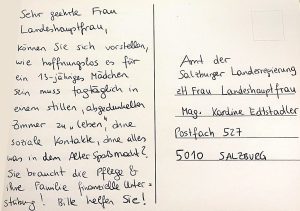 Sehr geehrte Frau
Landeshauptfrau,
können Sie sich vorstellen,
wie hoffnungslos es für
ein 15-jähriges Mädchen
sein muss tagtäglich in
einem stillen, abgedunkelten
Zimmer zu „leben", ohne
soziale Kontakte, ohne alles
was in dem Alter Spaß macht?
Sie braucht die Pflege &
ihre Familie finanzielle Unter-
stützung! Bitte helfen Sie!
Amt der
Salzburger Landesregierung
zH Frau Landeshauptfrau
Mag. Karoline Edtstadler
Postfach 527
5010 SALZBURG